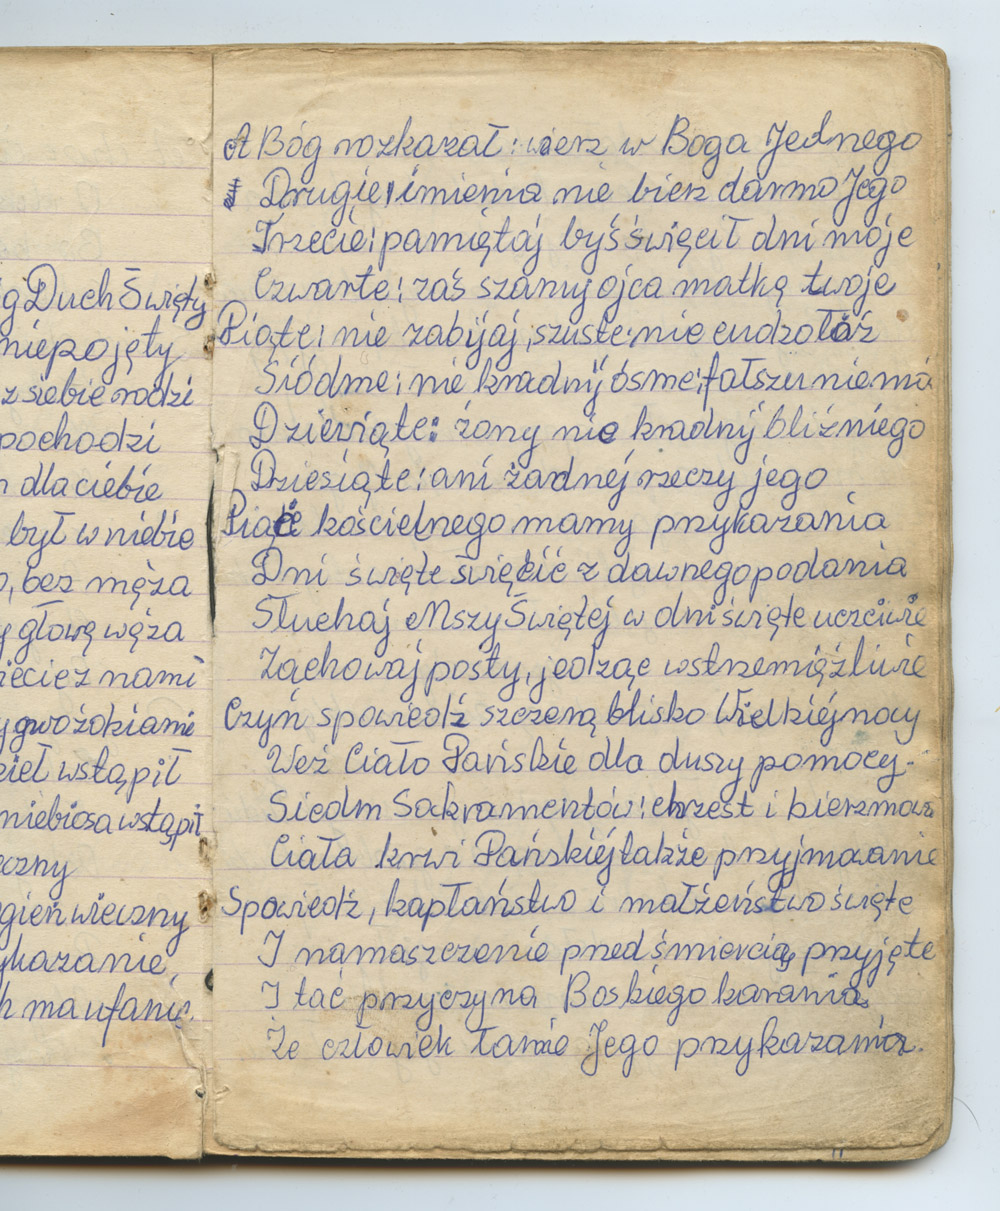 g Duch Święty
niepojęty
z siebie rodzi
pochodzi
dla ciebie
był w niebie
, bez męża
głowę węża
z nami
gwoździami
wstąpił
niebiosa wstąpił
czny
gień wieczny
ykazanie,
h ma ufanie.
A Bóg rozkazał: wierz w Boga Jednego
Drugie: imienia nie bierz darmo Jego
Trzecie: pamiętaj byś święcił dni moje
Czwarte: zaś szanuj ojca matkę twoje
Piąte: nie zabijaj, szuste: nie cudzołóż
Siódme: nie kradnij ósme: fałszu nie mó
Dziewiąte: żony nie kradnij bliźniego
Dziesiąte: ani żadnej rzeczy jego
Pięć kościelnego mamy przykazania
Dni święte święcić z dawnego podania
Słuchaj Mszy Świętej w dni święte uczciwie
Zachowaj posty, jedząc wstrzemięźliwie
Czyń spowiedź szczerą blisko Wielkiéjnocy
Weź Ciało Pańskie dla duszy pomocy.
Siedm Sakramentów: chrzest i bierzmowa
Ciała krwi Pańskiéj także przyjmowanie
Spowiedź, kapłaństwo i małżeństwo święte
I namaszczenie przed śmiercią przyjęte
I tać przyczyna Boskiego karania
Że człowiek łamie Jego przykazania.